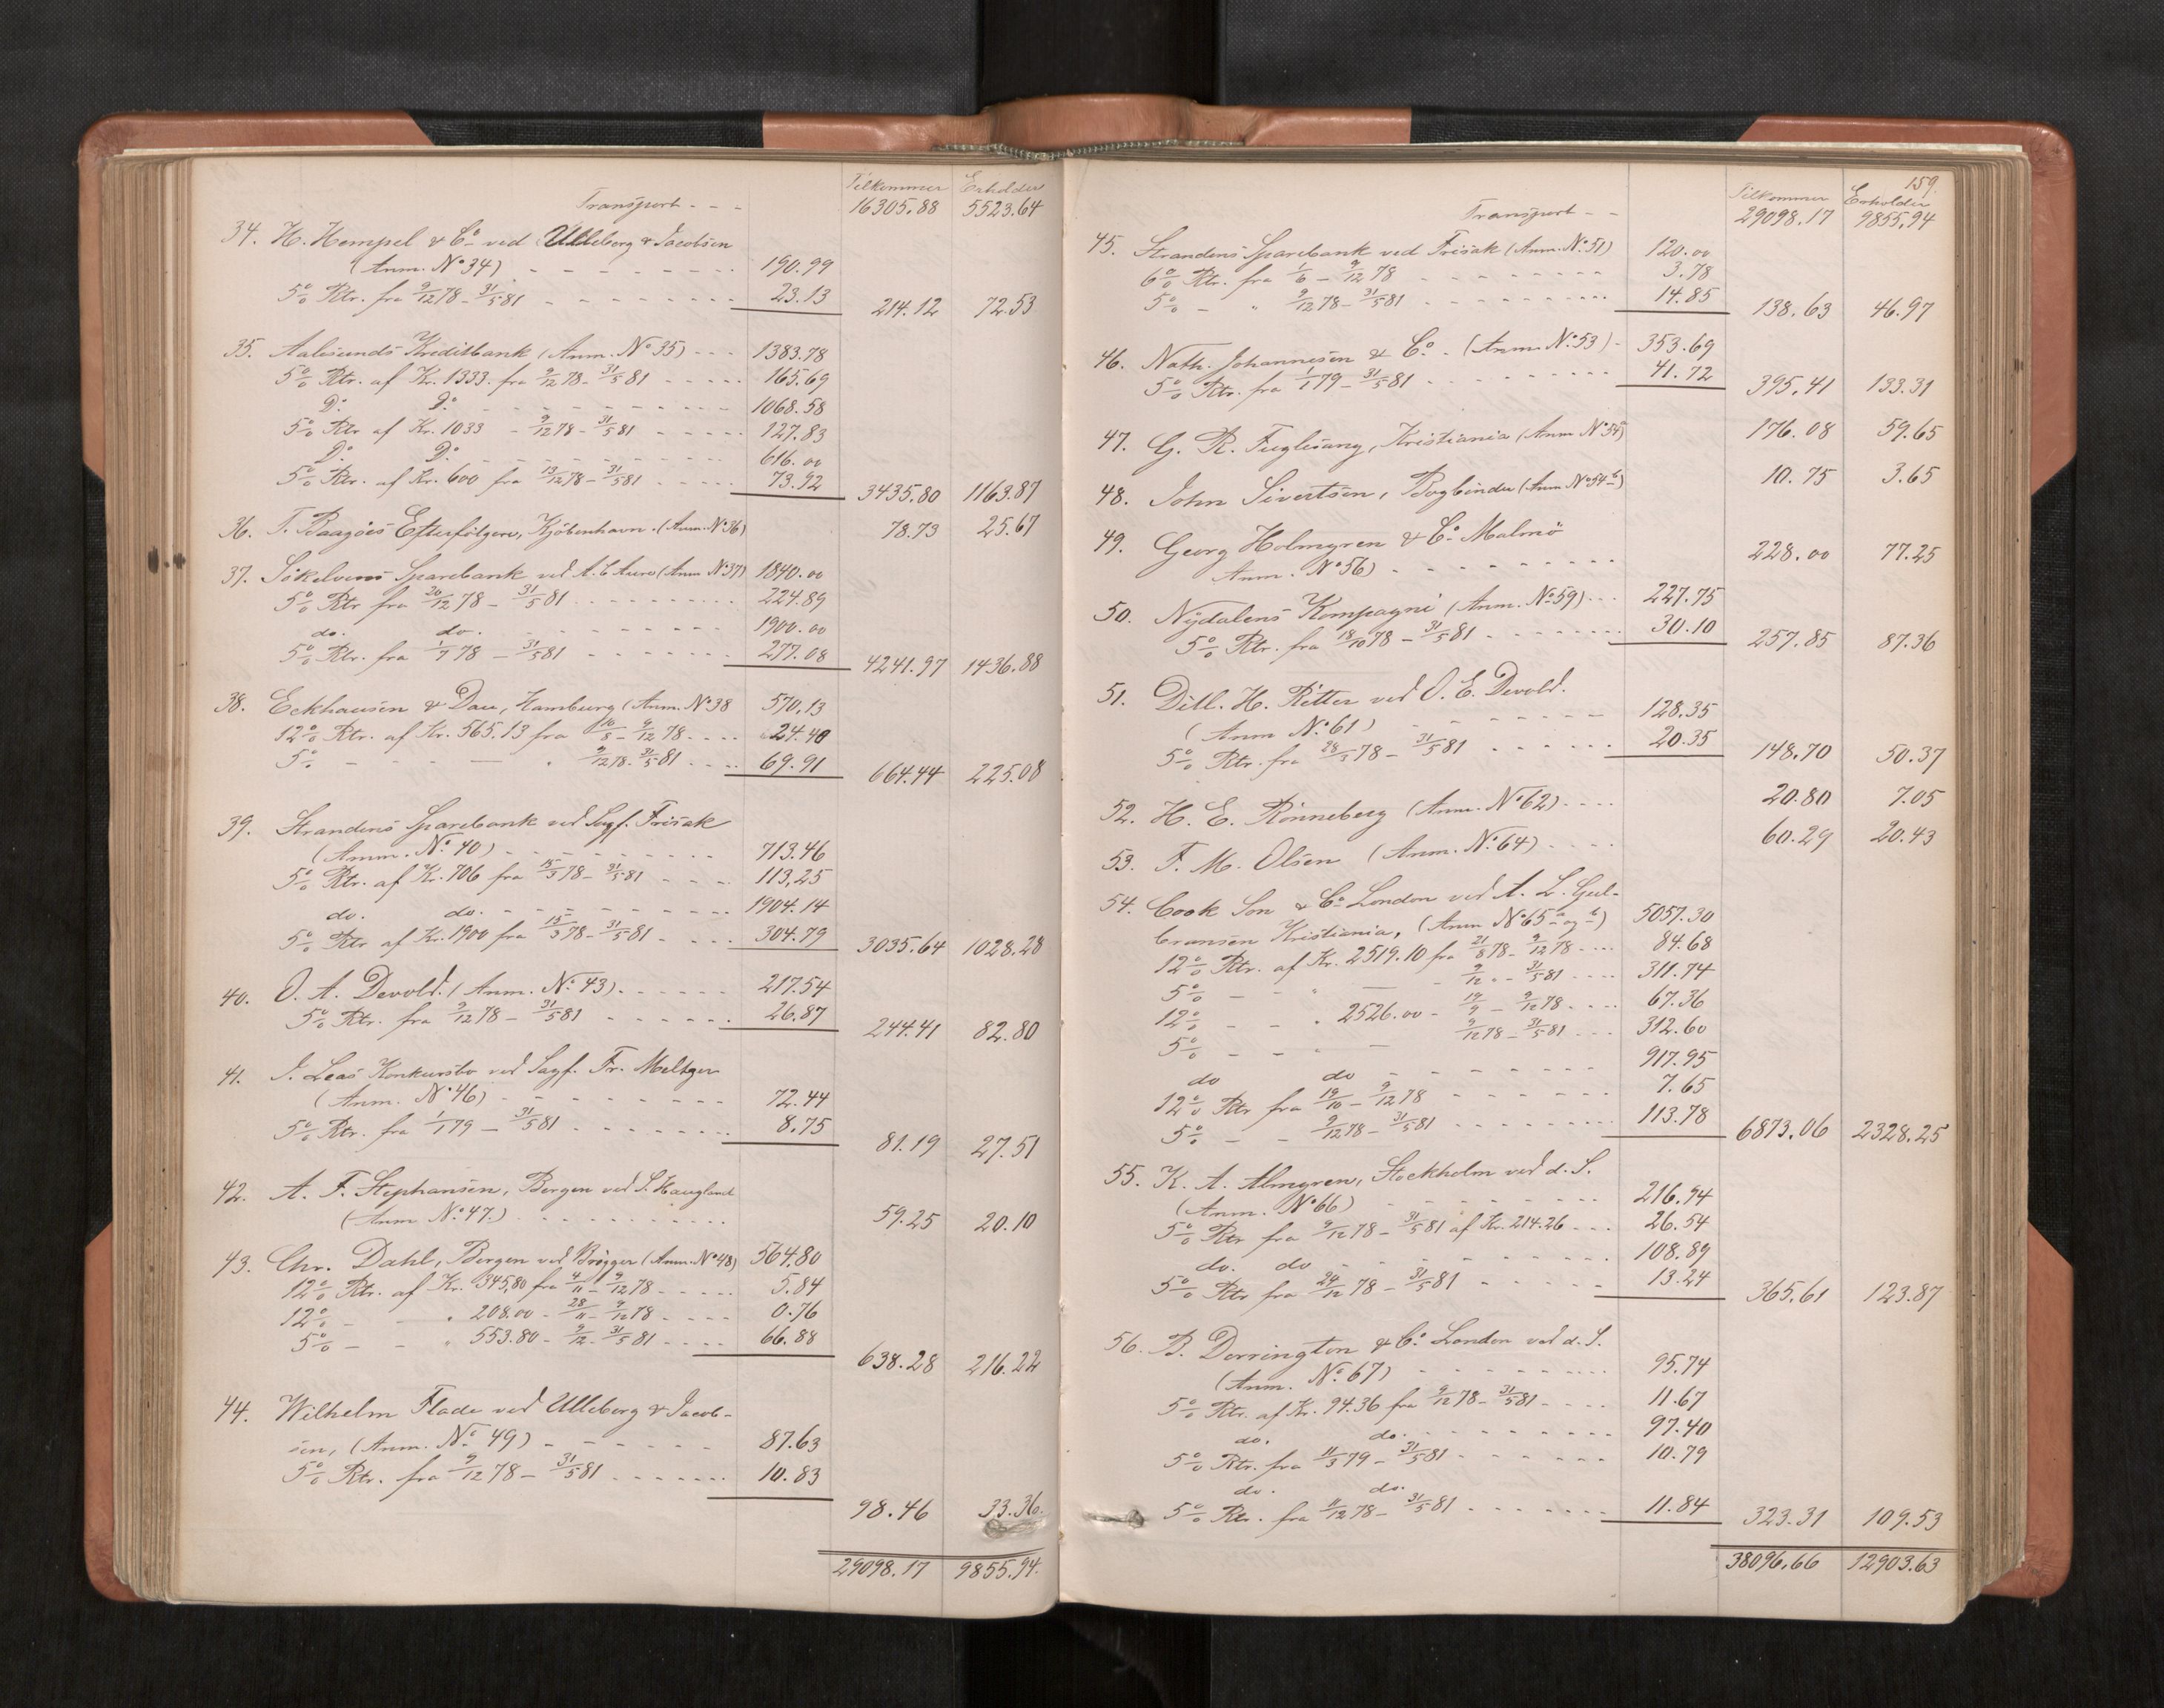 Tilkommer Erholder
Transport - - - 16305.88 5523.64
34. H. Hempel & Co. ved Ulleberg & Jacobsen
(Anm. No 34) - - - 190.99
5% Rtr. fra 9/12 78 - 31/5 81 - - - 23.13 214.12 72.53
35. Aalesunds Kreditbank (Anm. No 35) - - - 1383.78
5% Rtr. af Kr. 1333. fra 9/12 78 - 31/5 81 - - - 165.69
Do. Do. - - - 1068.58
5% Rtr af Kr. 1033 - 9/12 78 - 31/5 81 - - - 127.83
Do. Do. - - - 616.00
5% Rtr. af Kr. 600 fra 13/12 78 - 31/5 81 - - - 73.92 3435.80 1163.87
36. T. Baagöes Efterfölgere, Kjöbenhavn. (Anm. No 36) 78.73 25.67
37. Sökelvens Sparebank ved A. C. Aure (Anm No 37) 1840.00
5% Rtr fra 20/12 78 - 31/5 81 - - - 224.89
do. do. - - - 1900.00
5% Rtr. fra 1/7 78 - 31/5 81 - - - 277.08 4241.97 1436.88
38. Eckhausen & Dau, Hamburg (Anm. No 38 570.13
12% Rtr. af Kr. 565.13 fra 10/5 - 9/12 78 - - - 24.40
5% - - - " 9/12 78 - 31/5 81 - - - 69.91 664.44 225.08
39. Strandens Sparebank ved Sagf. Frisak
(Anm. No. 40) - - - 713.46
5% Rtr. af Kr. 706 fra 15/3 78 - 31/5 81 - - - 113,25
do. do. - - - 1904.14
5% Rtr af Kr. 1900 fra 15/3 78 - 31/5 81 - - - 304.79 3035.64 1028.28
40. O. A. Devold. (Anm. No. 43) - - - 217.54
5% Rtr. fra 9/12 78 - 31/5 81 - - - 26.87 244.41 82.80
41. J. Leas Konkursbo ved Sagf. Fr. Meltzer
(Anm. No 46) - - - 72.44
5% Rtr. fra 1/1 79 - 31/5 81 - - - 8.75 81.19 27.51
42. A. F. Stephansen, Bergen ved S. Haugland
(Anm No. 47.) - - - 59.25 20.10
43. Chr. Dahl, Bergen ved Brögger (Anm. No 48) 564.80
12% Rtr. af Kr. 345,80 fra 4/11 - 9/12 78 - - - 5.84
12% - - " 208.00 - 28/11 - 9/12 78 - - - 0.76
5% - - " 553.80 - 9/12 - 31/5 81 - - - 66.88 638.28 216.22
44. Wilhelm Flade ved Ulleberg & Jacob-
sen, (Anm. No. 49) - - - 87.63
5% Rtr. fra 9/12 78 - 31/5 81 - - - 10.83
98.46 33.36.
29098.17 9855.94.
159.
Tilkommer Erholder
Transport - - 29098.17 9855,94
45. Strandens Sparebank ved Frisak (Anm. No. 51) 120.00
6% Rtr. fra 1/6 - 9/12 78 - - - 3.78
5% - " 9/12 78 - 31/5 81 - - - 14.85 138.63 46.97
46. Nath. Johannesen & Co. - (Anm. No. 53) - 353.69
5% Rtr. fra 1/1 79 - 31/5 81 - - - 41.72 395.41 133.31
47. G. R. Fuglesang, Kristiania (Anm No 54a) 176.08 59.65
48. John Sivertsen, Bogbinder (Anm No 54b) 10.75 3.65
49. Georg Holmgren & Co. Malmö
Anm. No 56) - - - 228.00 77.25
50. Nydalens Kompagni (Anm. No. 59) - - - 227.75
5% Rtr. fra 18/10 78 - 31/5 81 - - - 30.10 257.85 87.36
51. Ditl. H. Ritter ved O. E. Devold.
(Anm No. 61) - - - 128.35
5% Rtr. fra 28/3 78 - 31/5 81 - - - 20.35 148.70 50.37
52. H. E. Rönneberg (Anm. No 62) - - - 20.80 7.05
53. F. M. Olsen (Anm. No. 64) - - - 60.29 20.43
54. Cook Son & Co. London ved A. L. Gul-
bransen Kristiania, (Anm No 65 a og b) 5057.30
12% Rtr. af Kr. 2519.10 fra 21/8 78 - 9/12 78 - - - 84.68
5% - - " - - 9/12 " - 31/5 81 - - - 311.74
12% - - " 2526.00 - 19/9 - 9/12 78 - - - 67.36
5% - - " - 9/12 78 - 31/5 81 - - - 312.60
do do - - - 917.95
12% Rtr fra 19/10 - 9/12 78 - - - 7.65
5% - - 9/12 78 - 31/5 81 - - - 113.78 6873.06 2328.25
55. K. A. Almgren, Stockholm ved d. S.
(Anm. No 66) - - - 216.94
5% Rtr fra 9/12 78 - 31/5 81 af Kr. 214.26 - - - 26.54
do. do - - - 108.89
5% Rtr fra 24/12 78 - 31/5 81 - - - 13.24 365.61 123.87
56. B. Dorrington & Co. London ved d. S.
(Anm. No. 67) - - - 95.74
5% Rtr. af Kr. 94.36 fra 9/12 78 - 31/5 81 - - - 11.67
do. do. - - - 97.40
5% Rtr. fra 11/3 79 - 31/5 81 - - - 10.79
do. do.
5% Rtr. fra 11/12 78 - 31/5 81 - - - 11.84 323.31 109.53
38096.66 12903.63